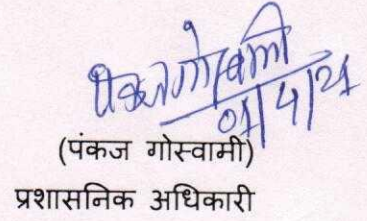 पंकज गोस्वामी
01/4/21
(पंकज गोस्वामी)
प्रशासनिक अधिकारी